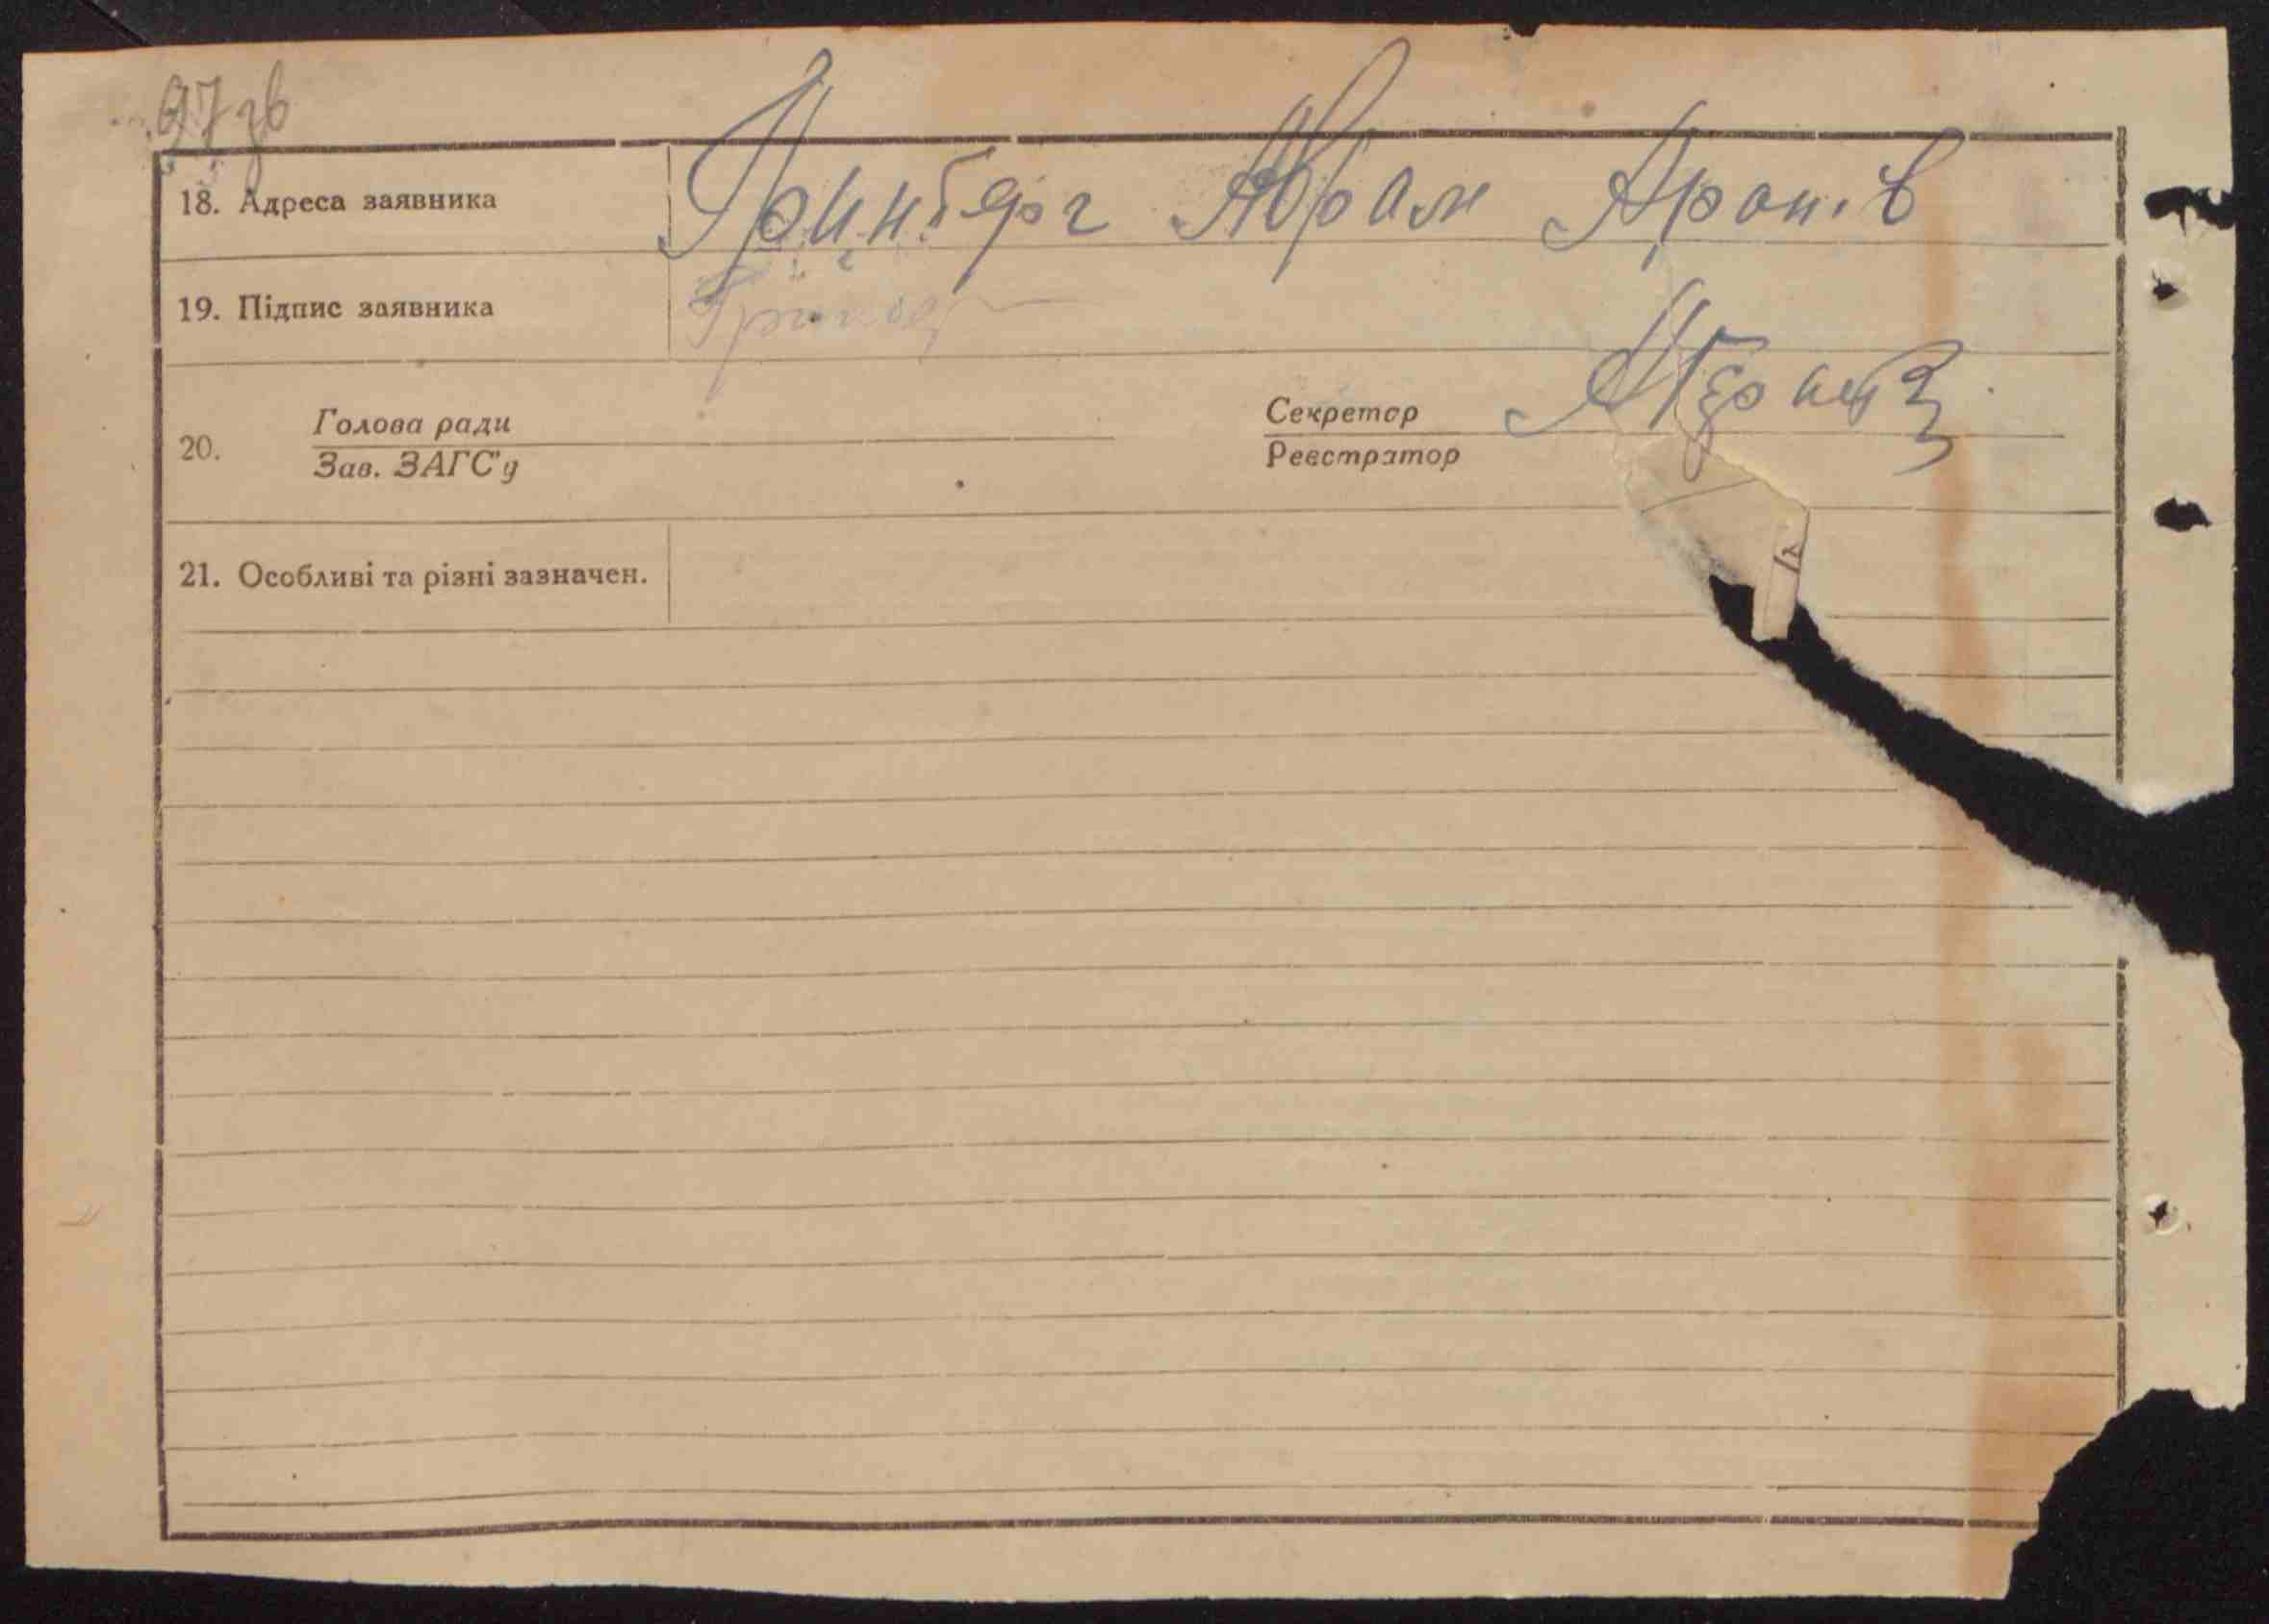 97 зв
18. Адреса заявника Гринберг Абрам Аронів
19. Підпис заявника
20. Голова ради
Зав. ЗАГС'у
Секретар
Реєстратор
21. Особливі та різні зазначен.